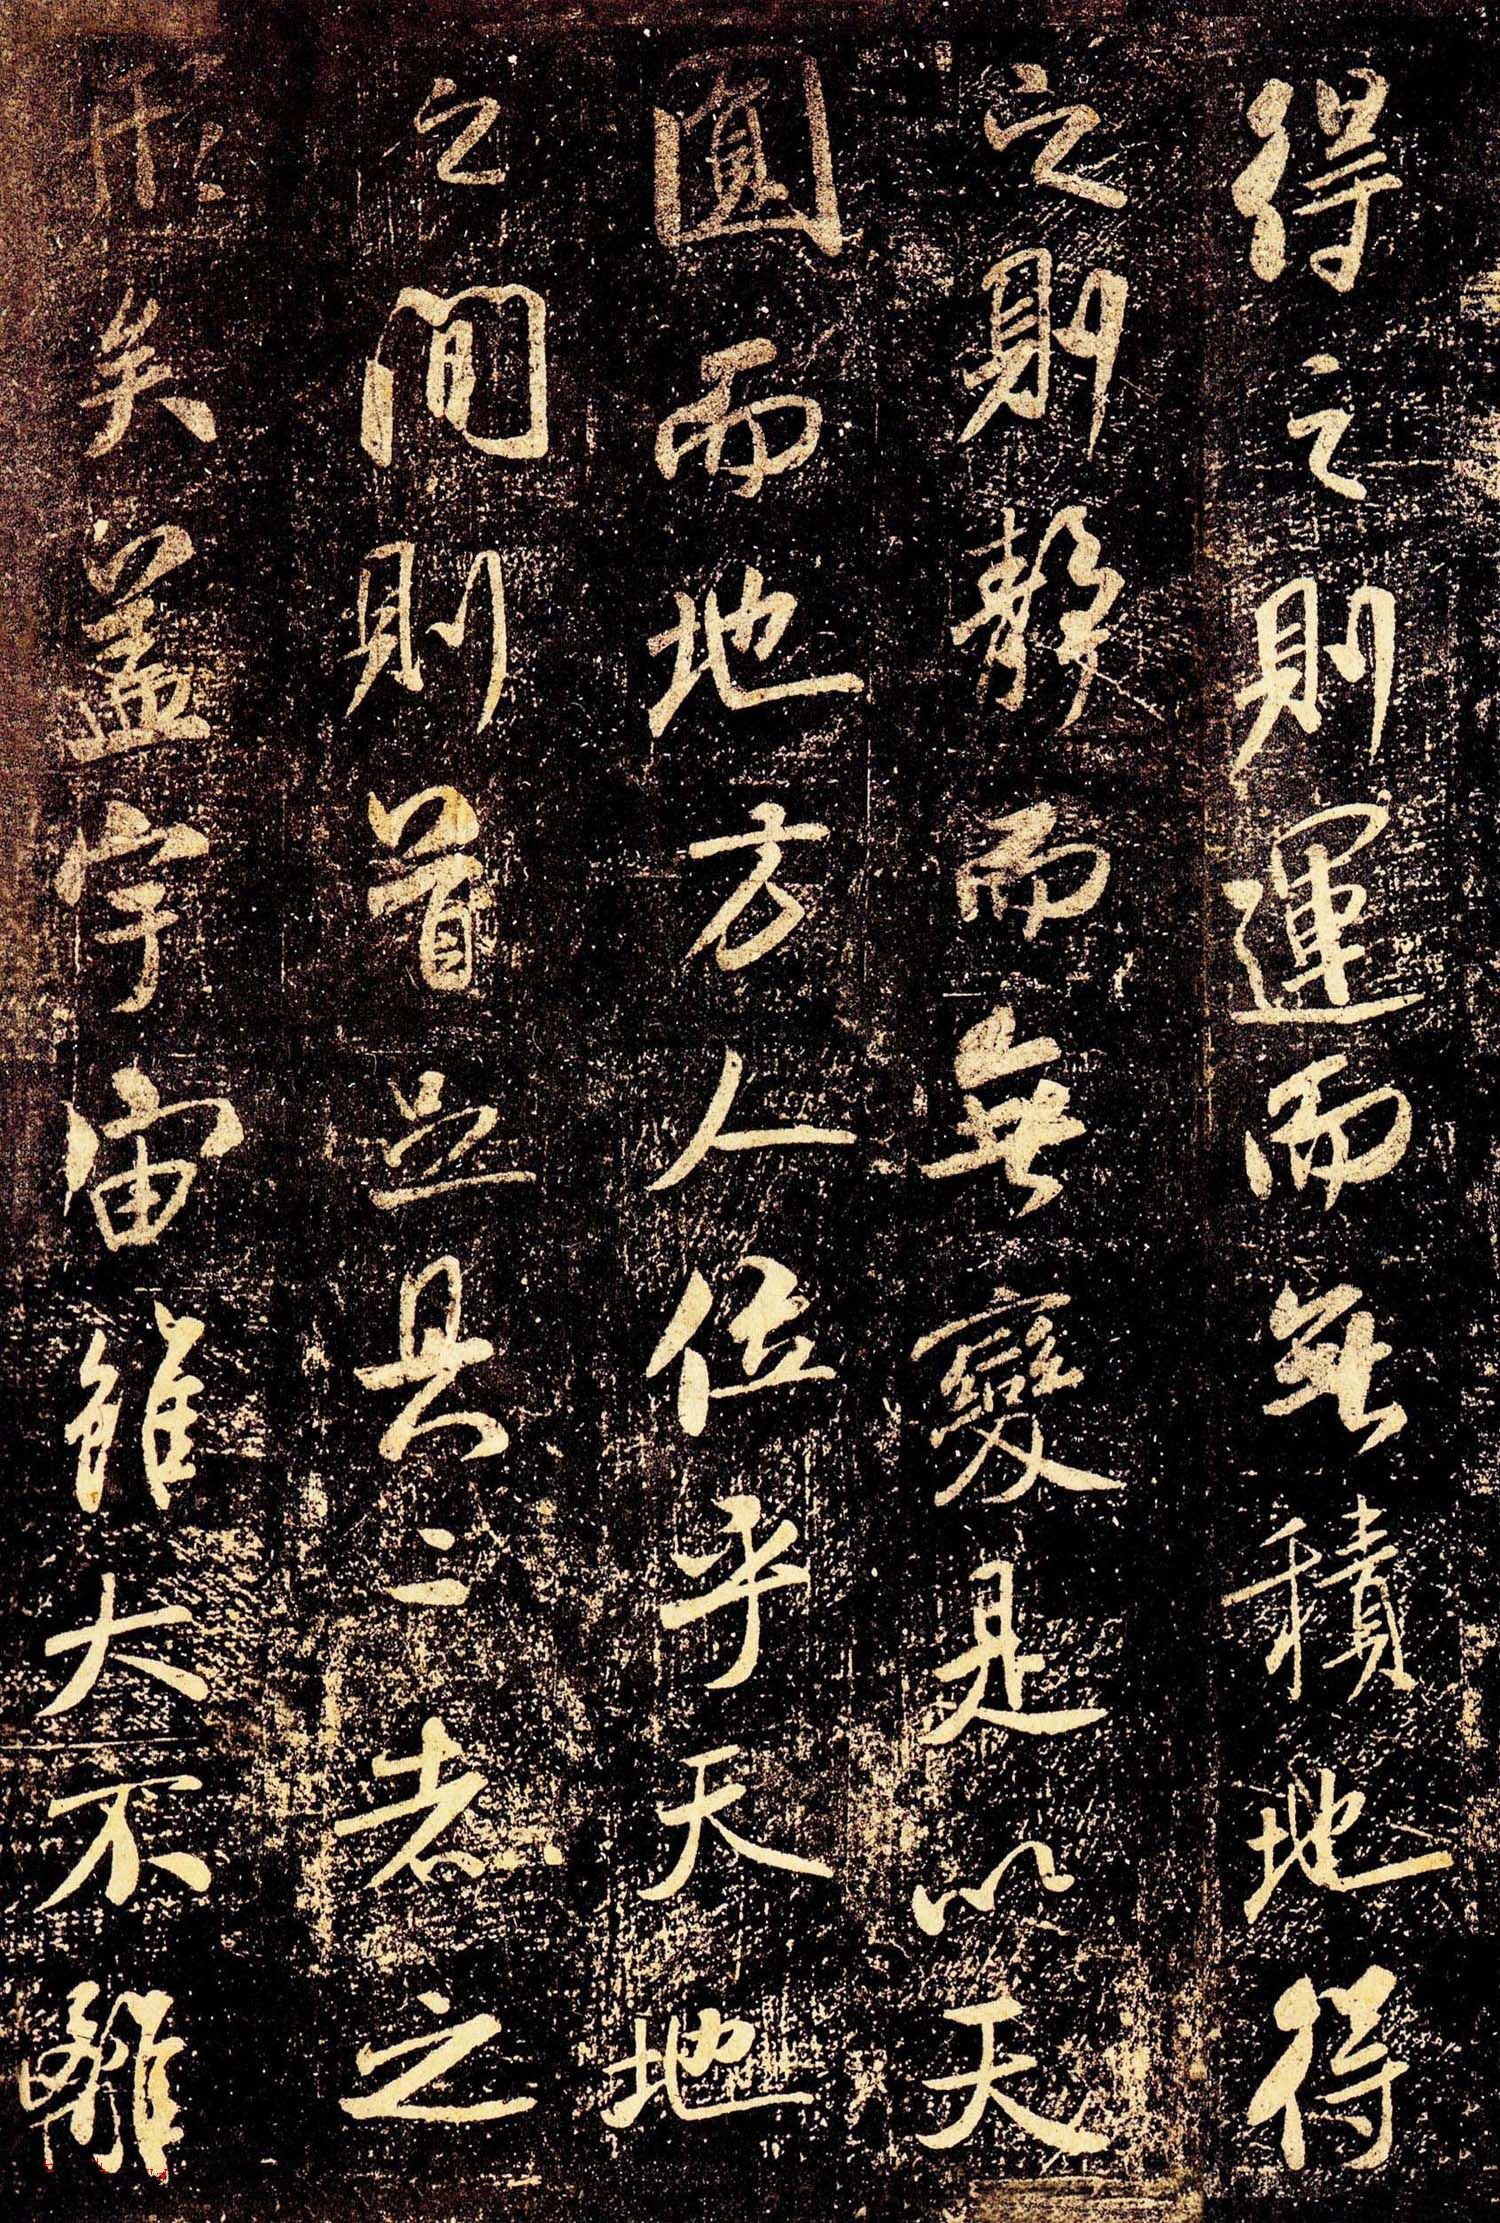 得之則運而無積地得
之則靜而無變是以天
圓而地方人位乎天地
之間則首足具二者之
形矣蓋宇宙雖大不離